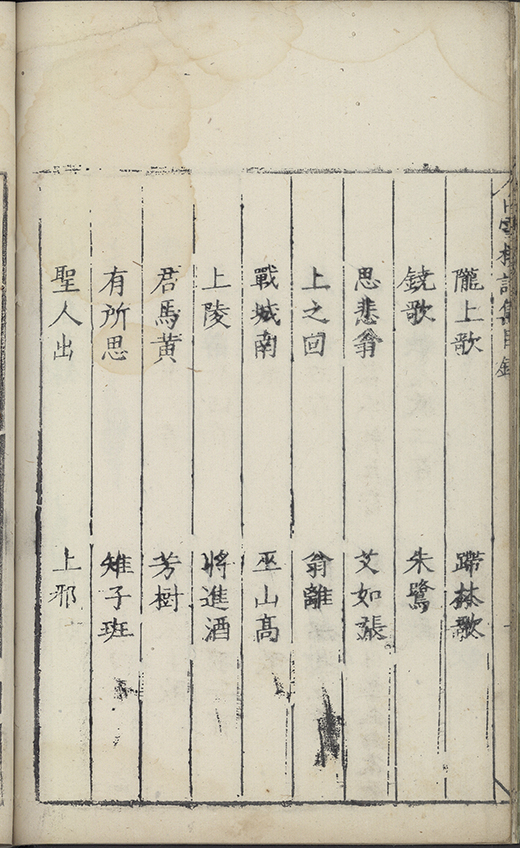 隴上歌 蹛林歌
鐃歌 朱鷺
思悲翁 艾如張
上之回 翁離
戰城南 巫山高
上陵 將進酒
君馬黃 芳樹
有所思 雉子班
聖人出 上邪